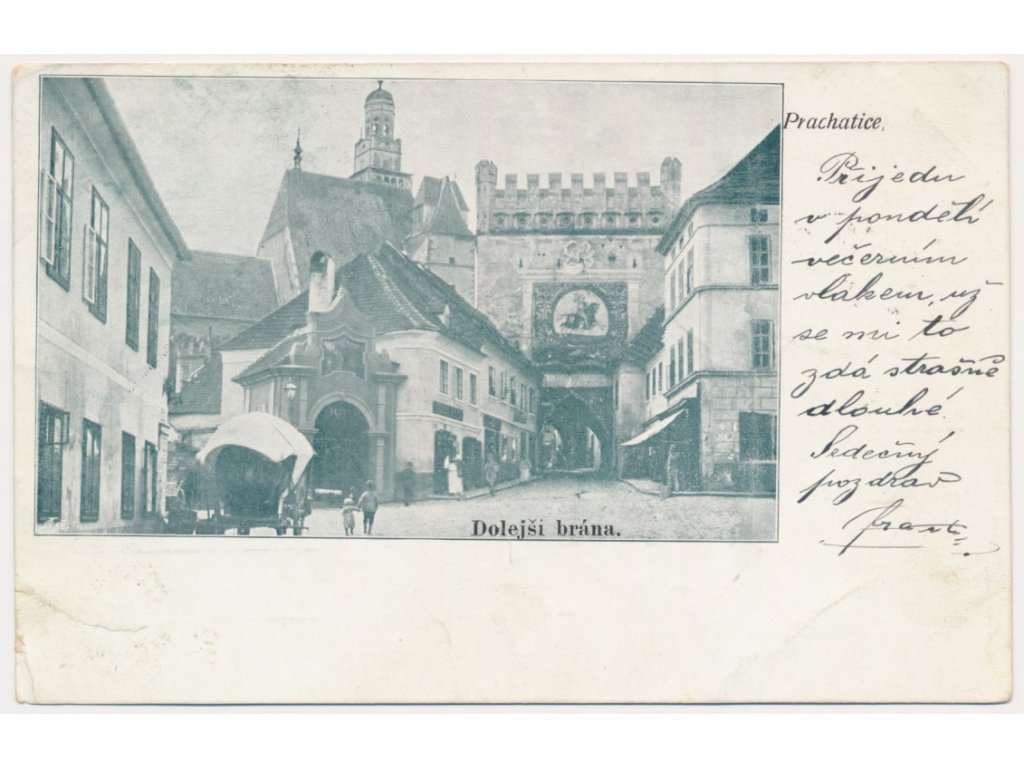 Prachatice,
Přijedu
v pondělí
večerním
vlakem, už
se mi to
zdá strašně
dlouhé.
Srdečný
pozdrav
Dolejší brána.